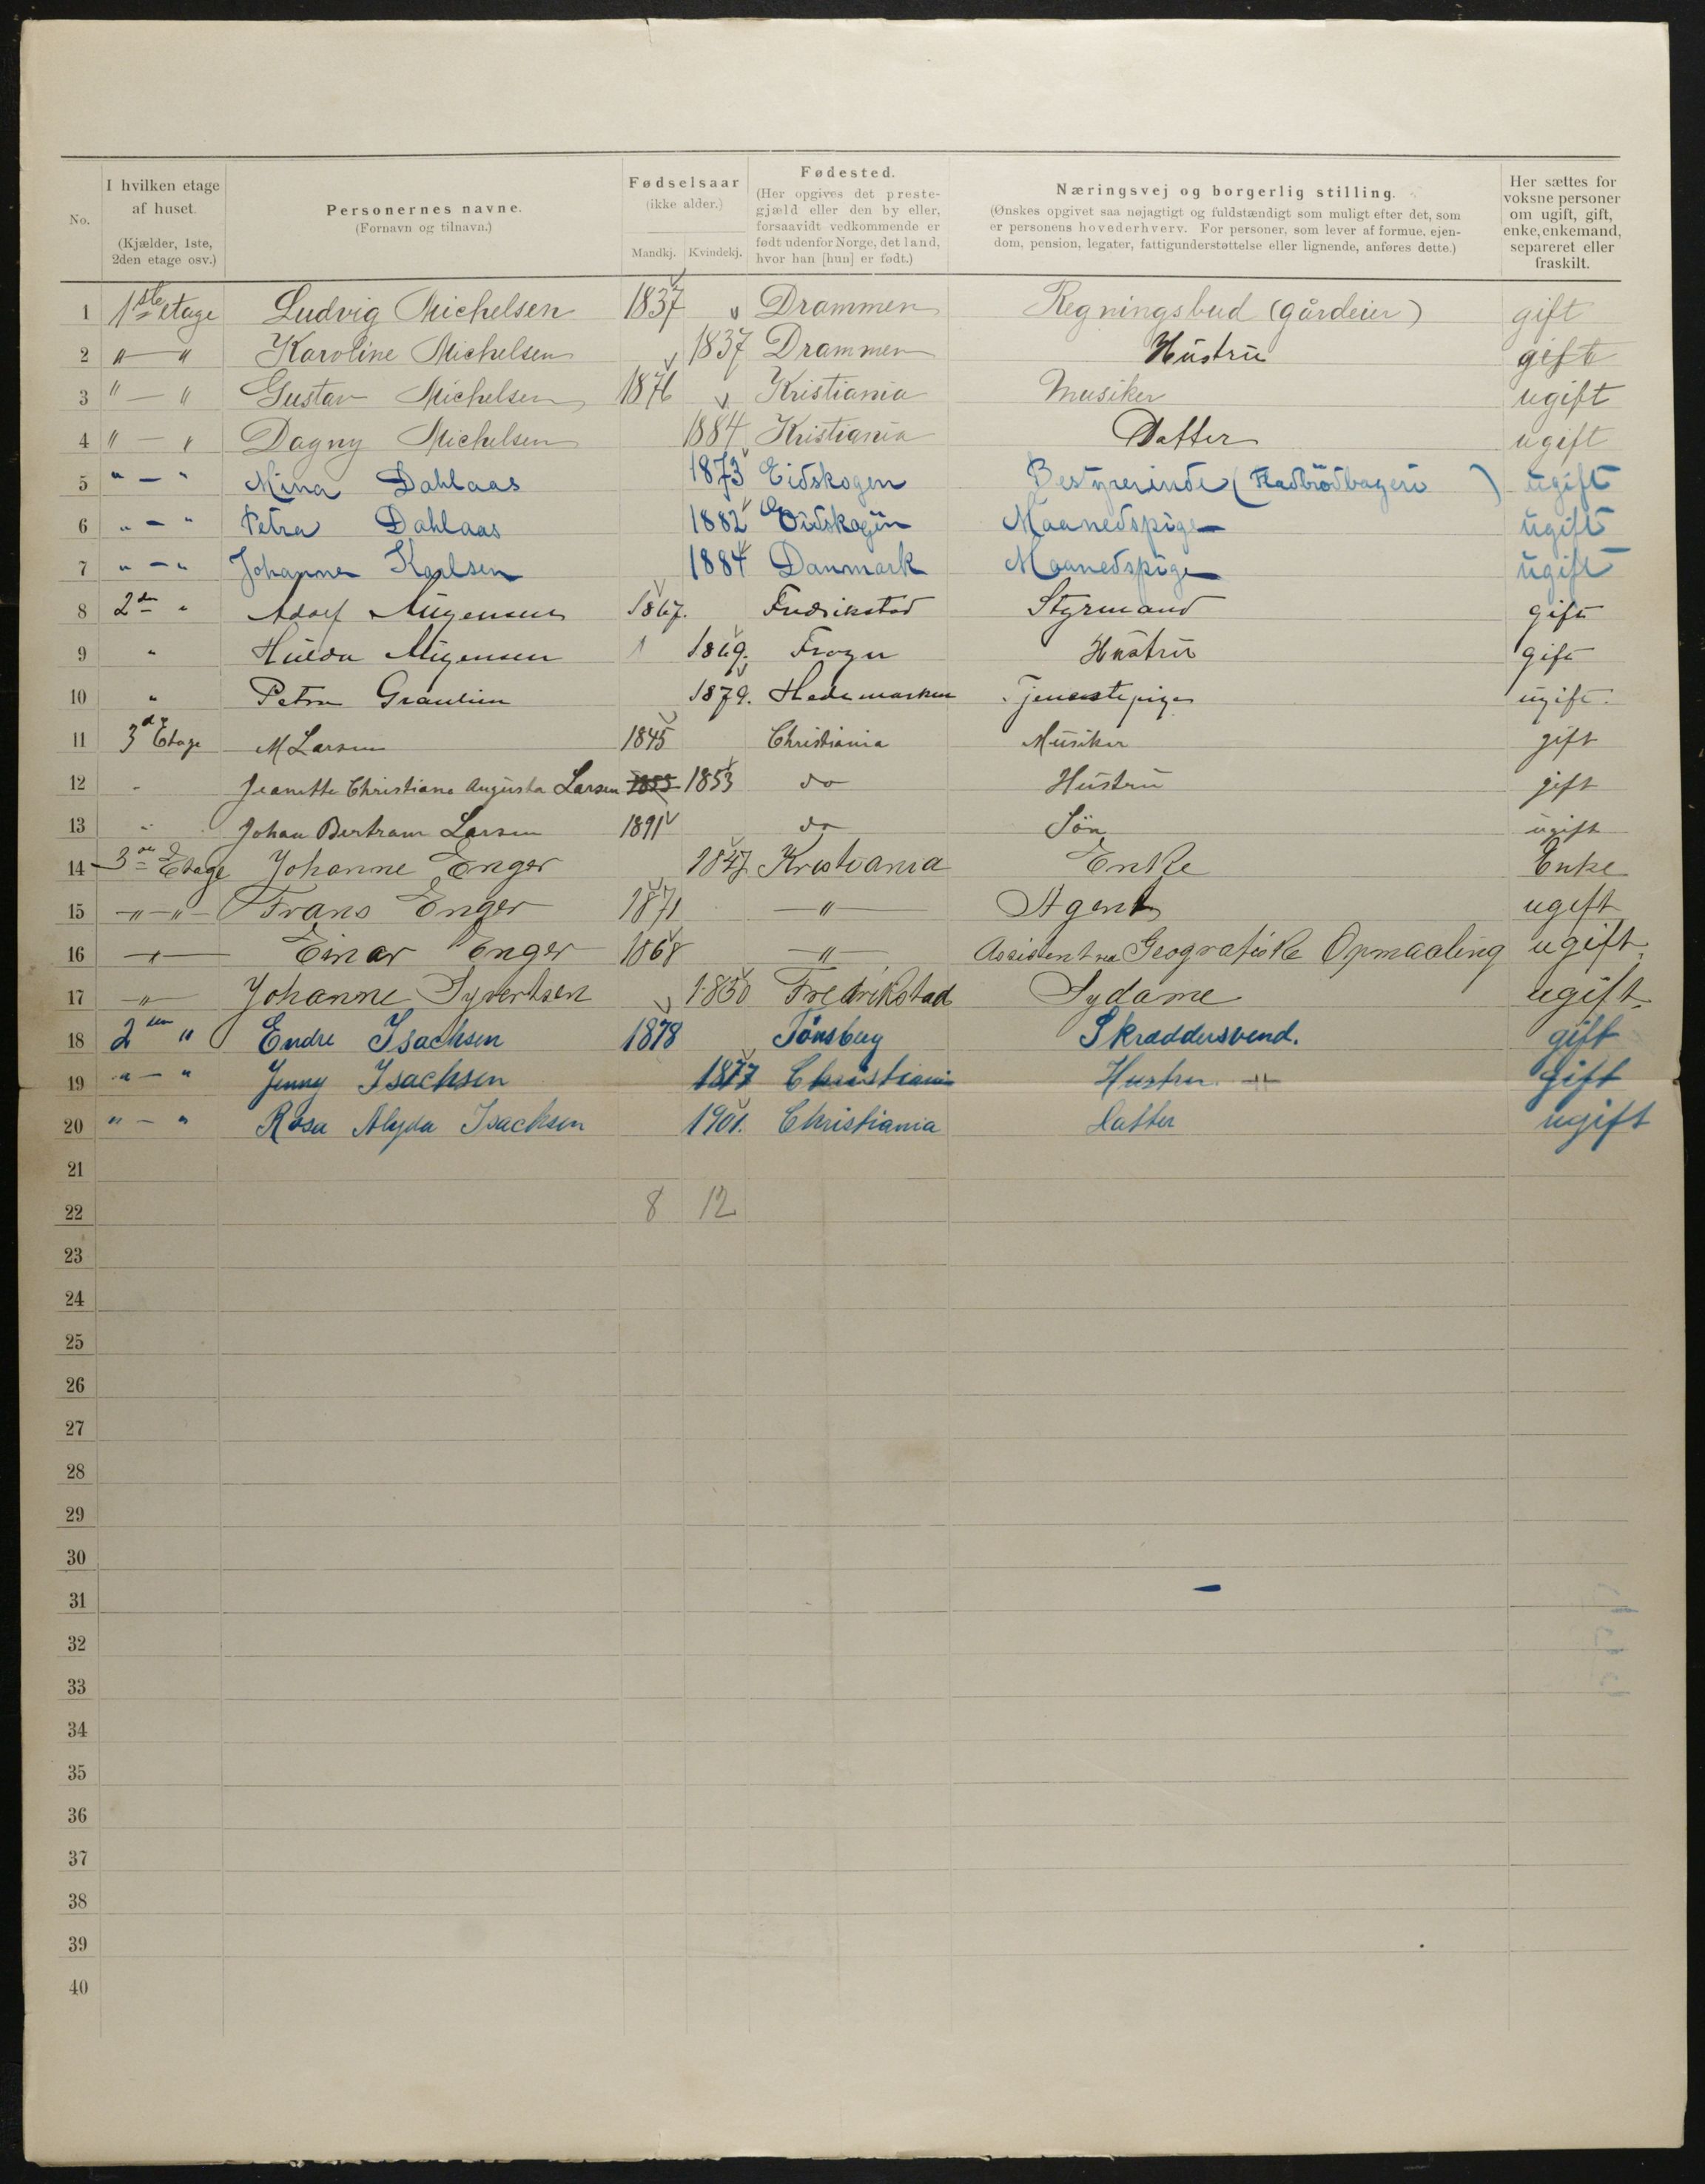 No.
I hvilken etage af huset. (Kjælder, 1ste, 2den etage osv.)
Personernes navne. (Fornavn og tilnavn.)
Fødselsaar (ikke alder.) Mandkj. Kvindekj.
Fødested. (Her opgives det prestegjæld eller den by eller, forsaavidt vedkommende er født udenfor Norge, det land, hvor han [hun] er født.)
Næringsvej og borgerlig stilling. (Ønskes opgivet saa nøjagtigt og fuldstændigt som muligt efter det, som er personens hovederhverv. For personer, som lever af formue, ejendom, pension, legater, fattigunderstøttelse eller lignende, anføres dette.)
Her sættes for voksne personer om ugift, gift, enke, enkemand, separeret eller fraskilt.
1 1ste etage Ludvig Michelsen 1837 Drammen Regningsbud (gårdeier) gift
2 " — " Karoline Michelsen 1837 Drammen Hustru gift
3 " — " Gustav Michelsen 1876 Kristiania Musiker ugift
4 " — " Dagny Michelsen 1884 Kristiania Datter ugift
5 " — " Mina Dahlaas 1873 Eidskogen Bestyrerinde (Fladbrödbageri) ugift
6 " — " Petra Dahlaas 1882 Eidskogen Maanedspige ugift
7 " — " Johanne Karlsen 1884 Danmark Maanedspige ugift
8 2den " Adolf 1867. Fredrikstad Styrmand gift
9 " Hulda 1869. Frogn Hustru gift
10 " Petra 1879. Hedemarken Tjenestepige ugift.
11 3d Etage M Larsen 1845 Christiania Musiker gift
12 " Jeanette Christiane Augusta Larsen 1853 1853 do Hustru gift
13 " Johan Bertram Larsen 1891 do Sön ugift
14 3die Etage Johanne Enger 1847 Kristiania Enke Enke
15 — " — " — Frans Enger 1871 — " — Agent ugift
16 — " — Einar Enger 1868 — " — Assistent ved Geografiske Opmaaling ugift.
17 — " — Johanne Syvertsen 1830 Fredrikstad Sydame ugift.
18 2den " Endre Isachsen 1878 Tönsberg Skræddersvend. gift
19 " — " Jenny Isachsen 1877 Christiania Hustru gift
20 " — " Rosa Alyda Isachsen 1901. Christiania Datter ugift
21
22 8 12
23
24
25
26
27
28
29
30
31
32
33
34
35
36
37
38
39
40